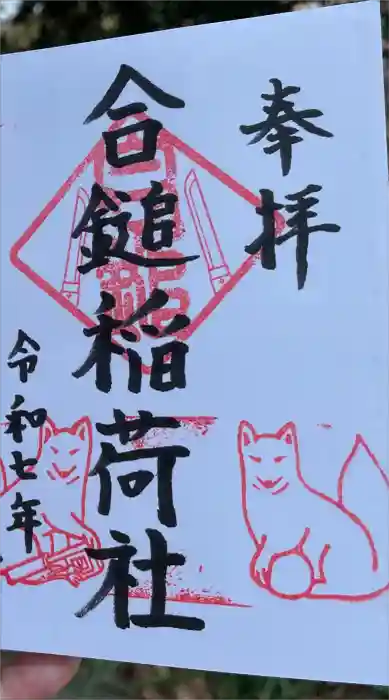 奉拝
合鎚稲荷社
令和七年